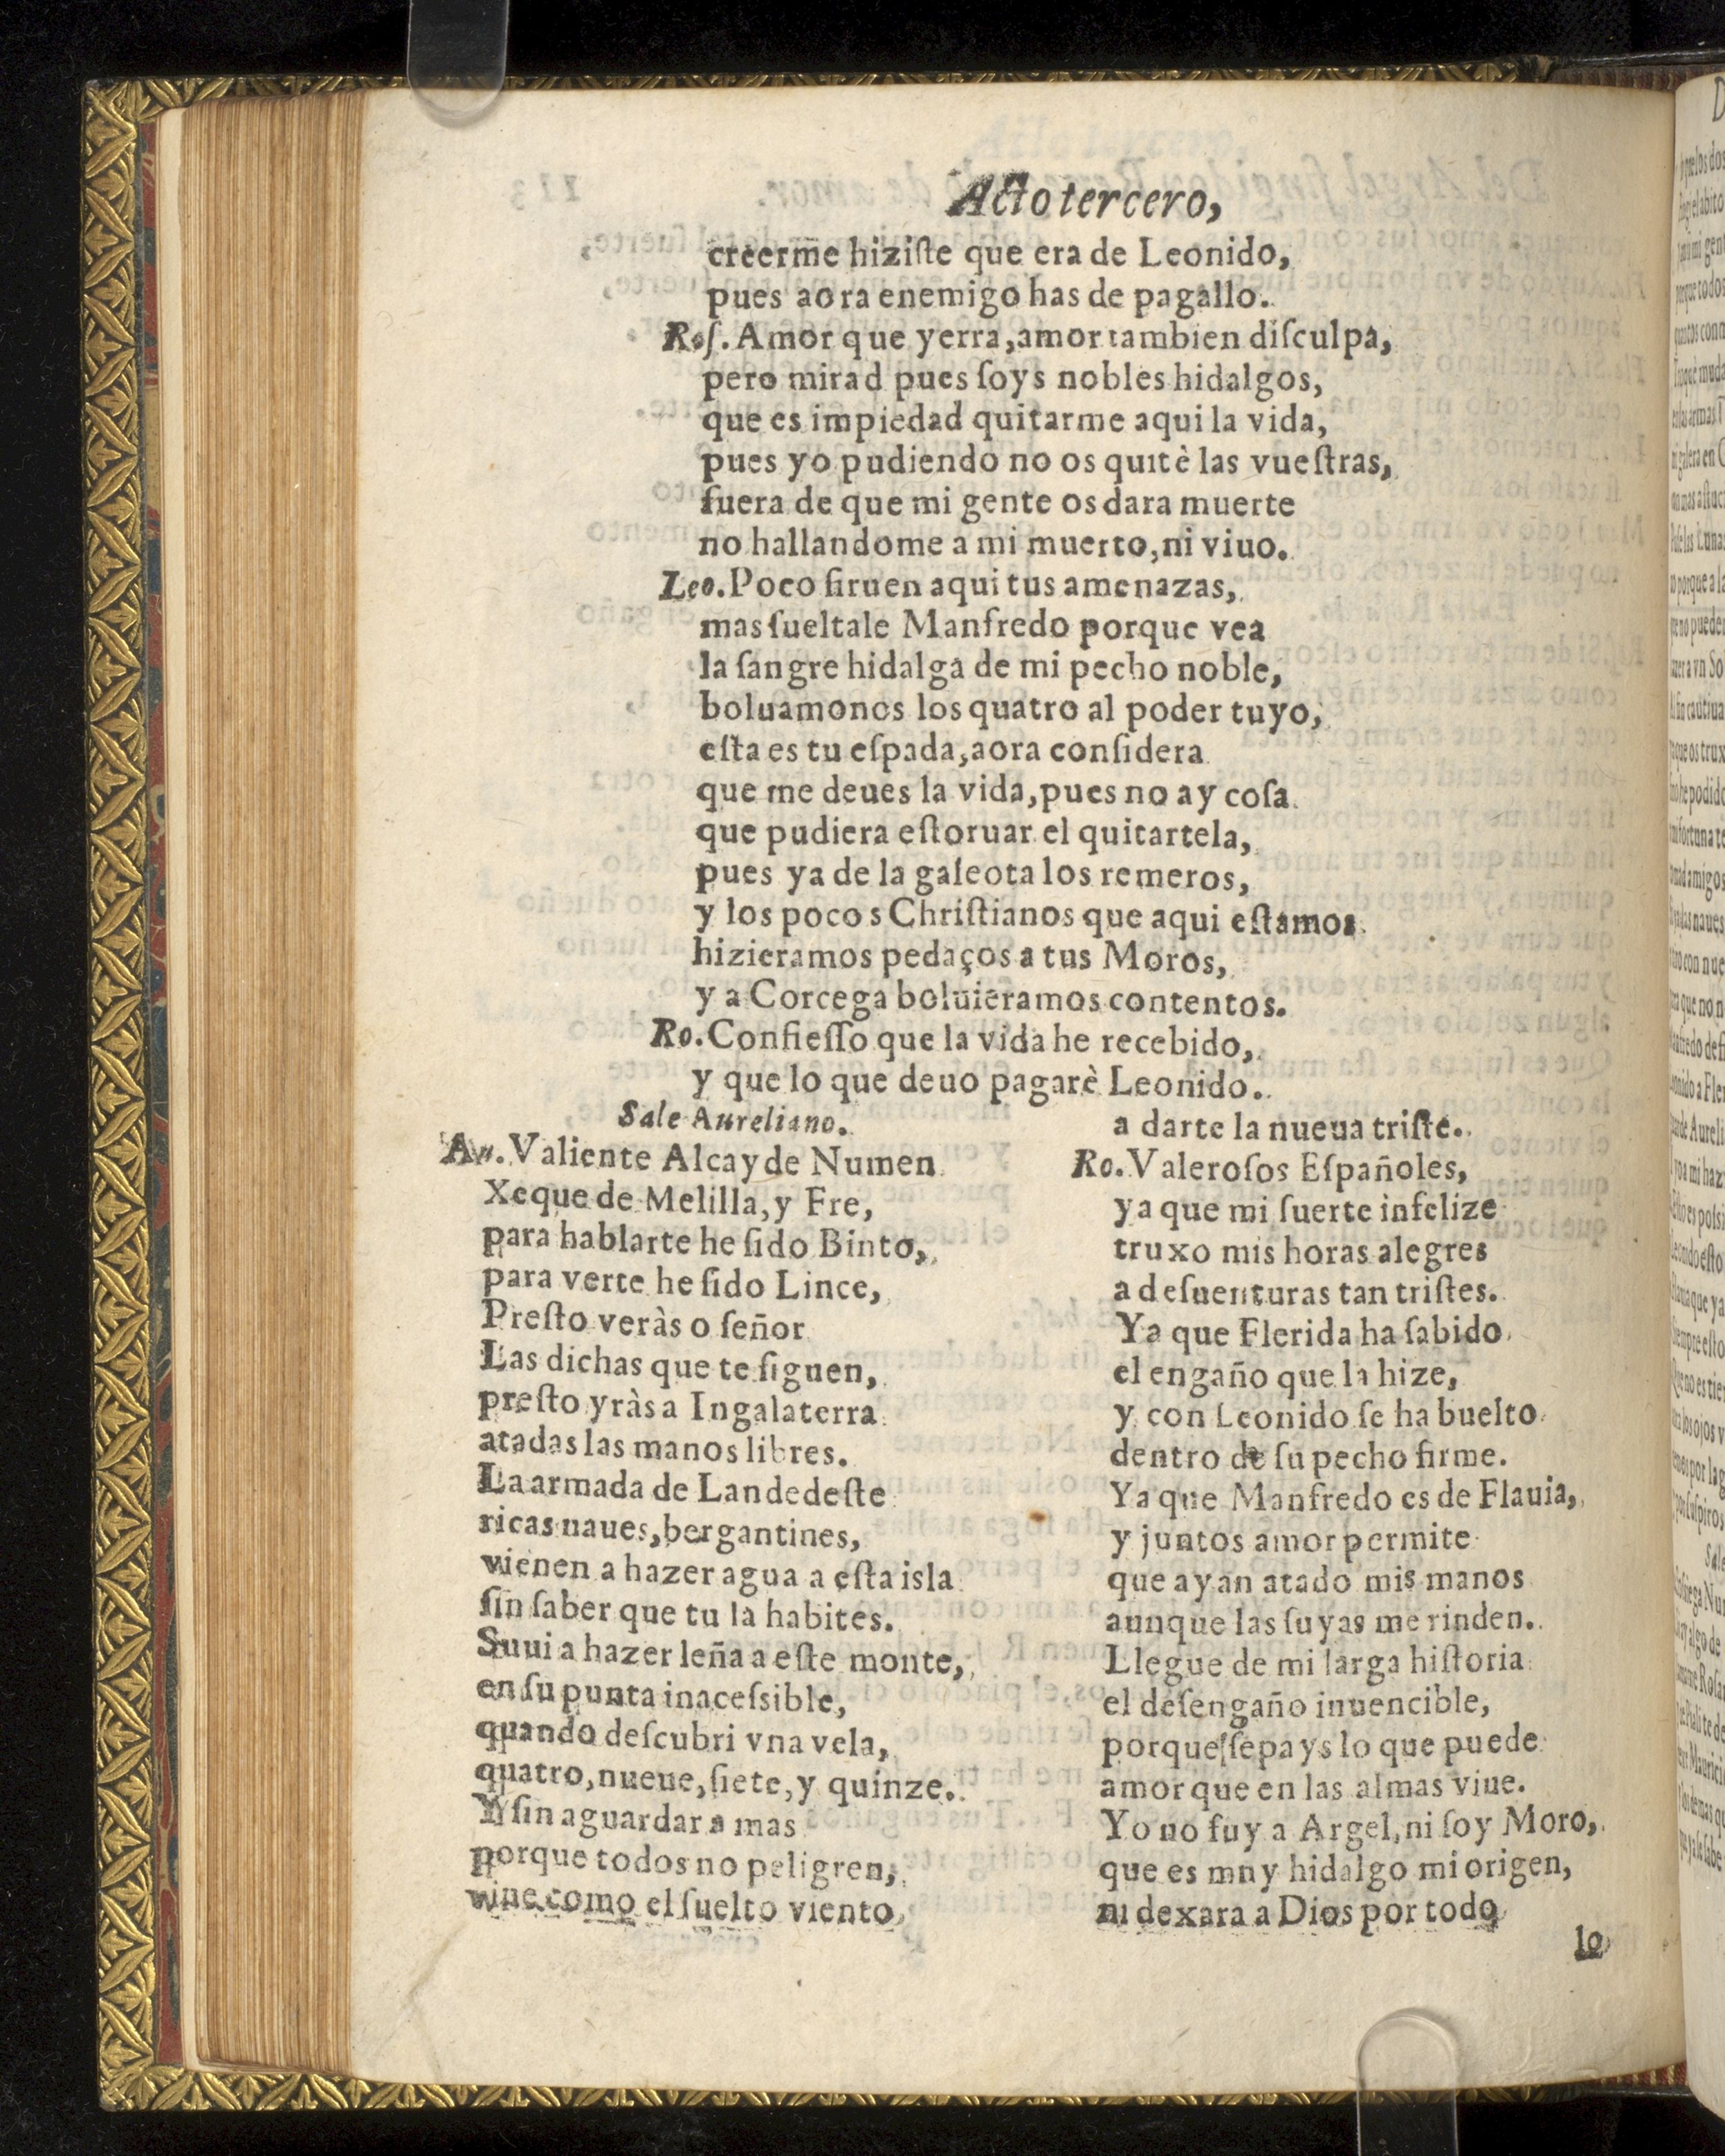 Acto tercero,
creerme hiziſte que era de Leonido,
pues aora enemigo has de pagallo.
Roſ. Amor que yerra, amor tambien diſculpa,
pero mirad pues ſoys nobles hidalgos,
que es impiedad quitarme aqui la vida,
pues yo pudiendo no os quitè las vueſtras,
fuera de que mi gente os dara muerte
no hallandome a mi muerto, ni viuo.
Leo. Poco ſiruen aqui tus amenazas,
mas ſueltale Manfredo porque vea
la ſangre hidalga de mi pecho noble,
boluamonos los quatro al poder tuyo,
eſta es tu eſpada, aora conſidera
que me deues la vida, pues no ay coſa
que pudiera eſtoruar el quitartela,
pues ya de la galeota los remeros,
y los pocos Chriſtianos que aqui eſtamos
hizieramos pedaços a tus Moros,
y a Corcega boluieramos contentos.
Ro. Confieſſo que la vida he recebido,
y que lo que deuo pagarè Leonido.
Sale Aureliano.
Au. Valiente Alcayde Numen
Xeque de Melilla, y Fre,
para hablarte he ſido Binto,
para verte he ſido Lince,
Preſto veràs o ſeñor
Las dichas que te ſiguen,
preſto yràs a Ingalaterra
atadas las manos libres.
La armada de Landedeſte
ricas naues, bergantines,
vienen a hazer agua a eſta isla
ſin ſaber que tu la habites.
Suui a hazer leña a eſte monte,
en ſu punta inaceſsible,
quando deſcubri vna vela,
quatro, nueue, ſiete, y quinze.
Y ſin aguardar a mas
porque todos no peligren,
vine como el ſuelto viento
a darte la nueua triſte.
Ro. Valeroſos Eſpañoles,
ya que mi ſuerte infelize
truxo mis horas alegres
a deſuenturas tan triſtes.
Ya que Flerida ha ſabido
el engaño que la hize,
y con Leonido ſe ha buelto
dentro de ſu pecho firme.
Ya que Manfredo es de Flauia,
y juntos amor permite
que ayan atado mis manos
aunque las ſuyas me rinden.
Llegue de mi larga hiſtoria
el deſengaño inuencible,
porque ſepays lo que puede
amor que en las almas viue.
Yo no fuy a Argel, ni ſoy Moro,
que es mny hidalgo mi origen,
ni dexara a Dios por todo
lo